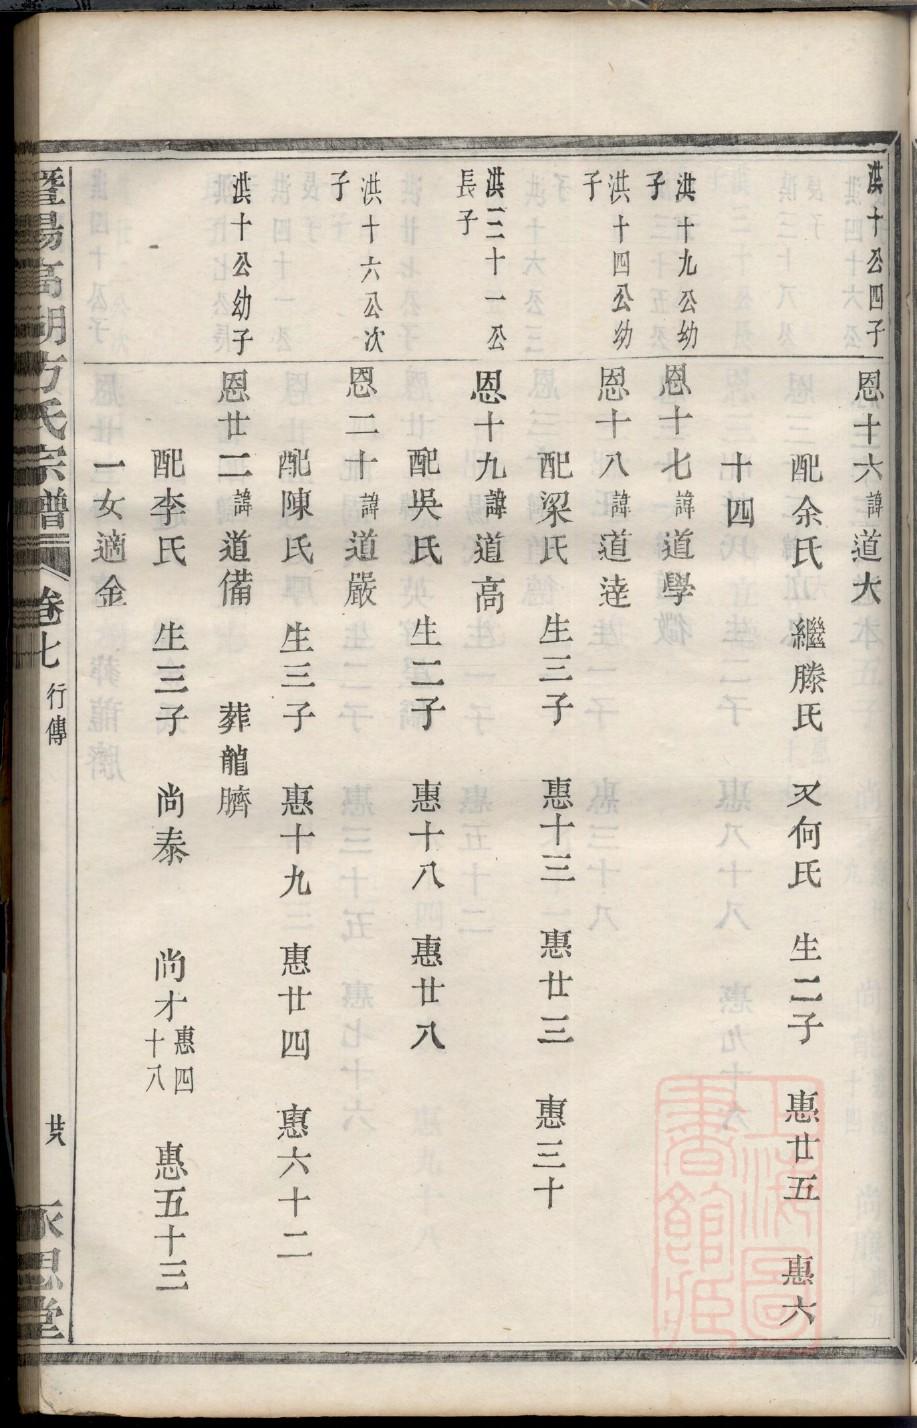 洪十公四子
恩十六諱道大
配余氏 繼滕氏 又何氏 生二子 惠廿五 惠六
十四
洪十九公幼
子
恩十七諱道學
洪十四公幼
子
恩十八諱道逹
配梁氏 生三子 惠十三 惠廿三 惠三十
洪三十一公
長子
恩十九諱道高
配吳氏 生二子 惠十八 惠廿八
洪十六公次
子
恩二十諱道嚴
配陳氏 生三子 惠十九 惠廿四 惠六十二
洪十公幼子
恩廿二諱道備 葬龍臍
配李氏 生三子 尚泰 尚才惠四十八 惠五十三
一女適金
暨陽高湖方氏宗譜 卷七 行傳 廿八 永思堂
上海圖書館藏